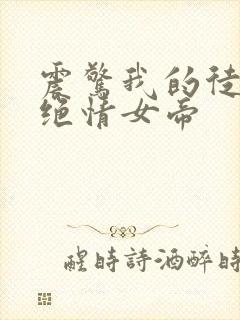 震驚我的徒
绝情女帝
醒時詩酒醉時